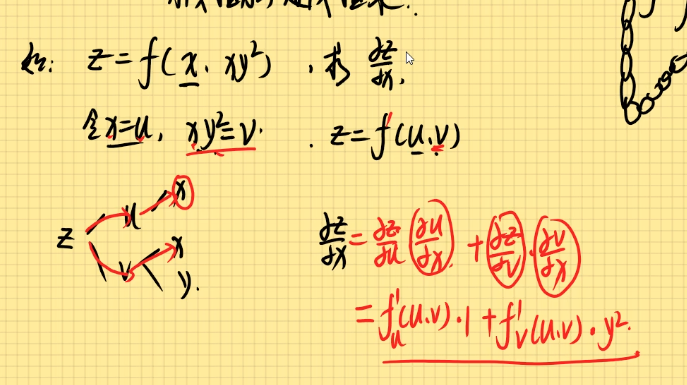 如: z=f(x, xy²), 求 ∂z/∂x,
令x=u, xy²=v. z=f(u,v)
z u x
v x y.
∂z/∂x = ∂z/∂u ∂u/∂x + ∂z/∂v · ∂v/∂x
= f'u(u,v)·1 + f'v(u,v)·y²